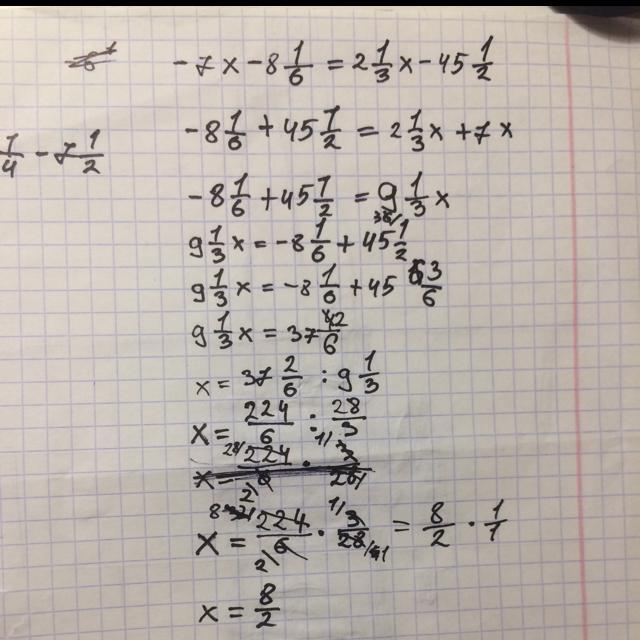 -7x - 8 1/6 = 2 1/3 x - 45 1/2
1/4 - 7 1/2
-8 1/6 + 45 1/2 = 2 1/3 x + 7x
-8 1/6 + 45 1/2 = 9 1/3 x
9 1/3 x = -8 1/6 + 45 1/2
9 1/3 x = -8 1/6 + 45 3/6
9 1/3 x = 37 2/6
x = 37 2/6 : 9 1/3
x = 224/6 : 28/3
x = 224/6 · 3/28
x = 224/6 · 3/28 = 8/2 · 1/1
x = 8/2